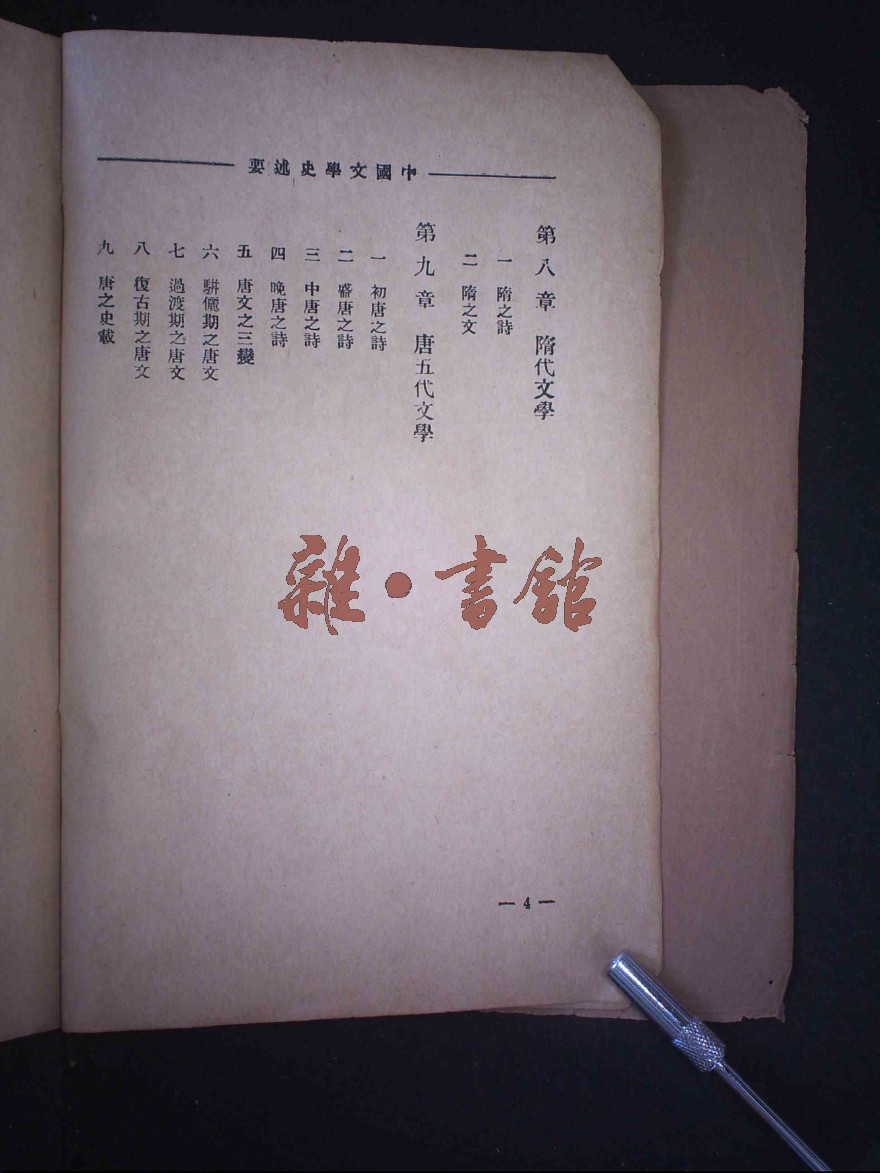 中國文學史述要
第八章 隋代文學
一 隋之詩
二 隋之文
第九章 唐五代文學
一 初唐之詩
二 盛唐之詩
三 中唐之詩
四 晚唐之詩
五 唐文之三變
六 駢儷期之唐文
七 過渡期之唐文
八 復古期之唐文
九 唐之史載
— 4 —
雜·書館